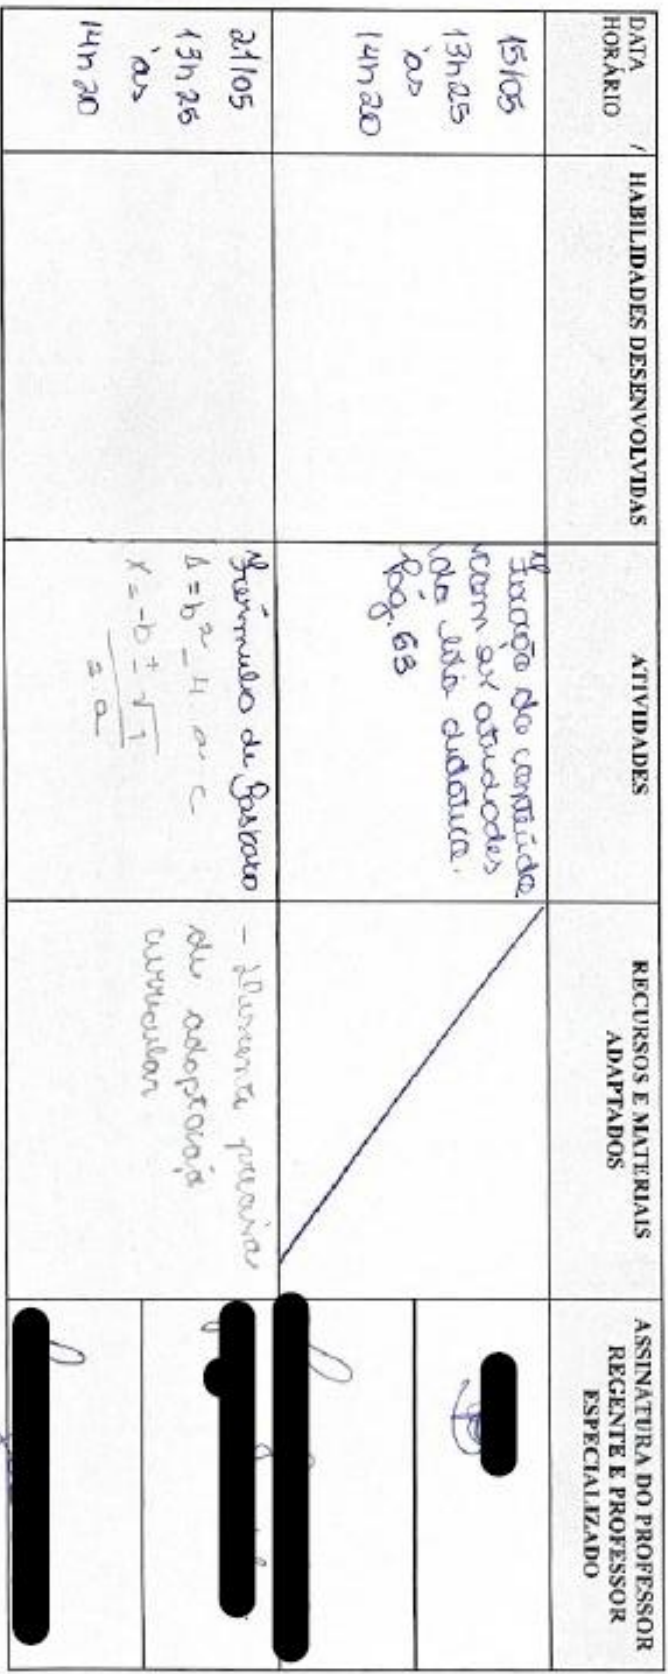 DATA /
HORÁRIO
HABILIDADES DESENVOLVIDAS
ATIVIDADES
RECURSOS E MATERIAIS
ADAPTADOS
ASSINATURA DO PROFESSOR
REGENTE E PROFESSOR
ESPECIALIZADO
15/05
13h25
às
14h20
Fixação do conteúdo
com as atividades
do livro didático.
pág. 63
21/05
13h25
às
14h20
Fórmula de Baskara
Δ = b² - 4.a.c
X = -b ± √
2.a
- Discente precisa
de adaptação
curricular